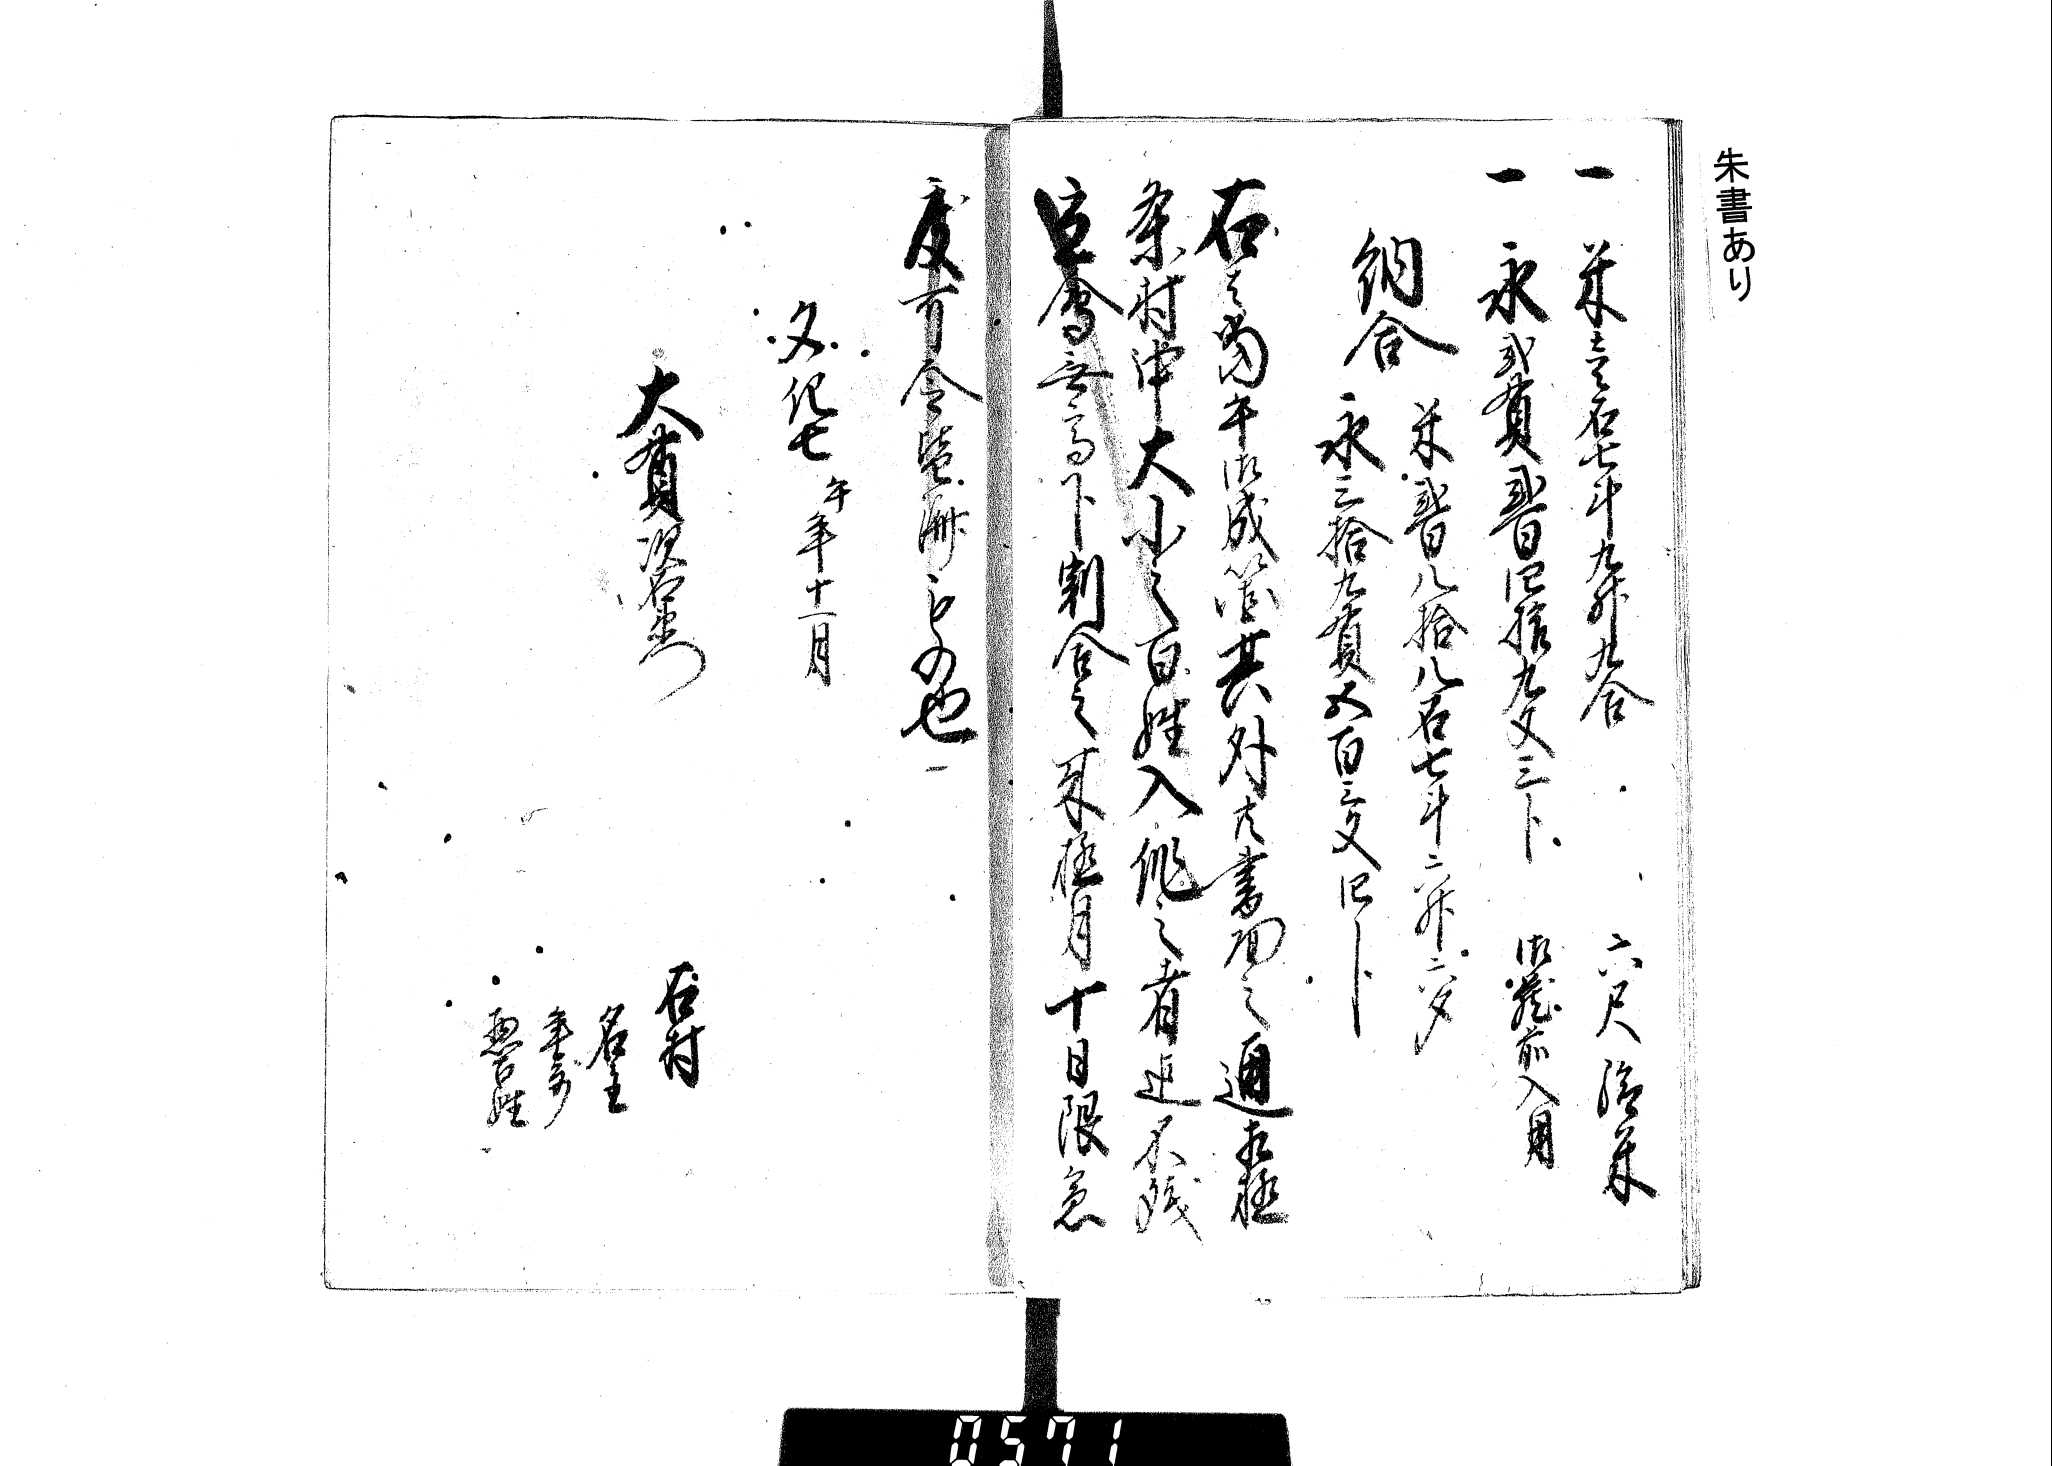 朱書あり
一 米壱石七斗九升九合 六尺給米
一 永弐貫弐百四拾九文三分 御蔵前入用
納合 米弐百八拾八石七斗二升六夕
永三拾九貫五百三文四分
右者当午御成箇其外書面之通相極
条村中大小之百姓入作之者迄不残
立会無高下割合之来極月十日限急
度可令皆済もの也
文化七午年十一月
大貫次右衛門
右村
名主
年寄
惣百姓
0571